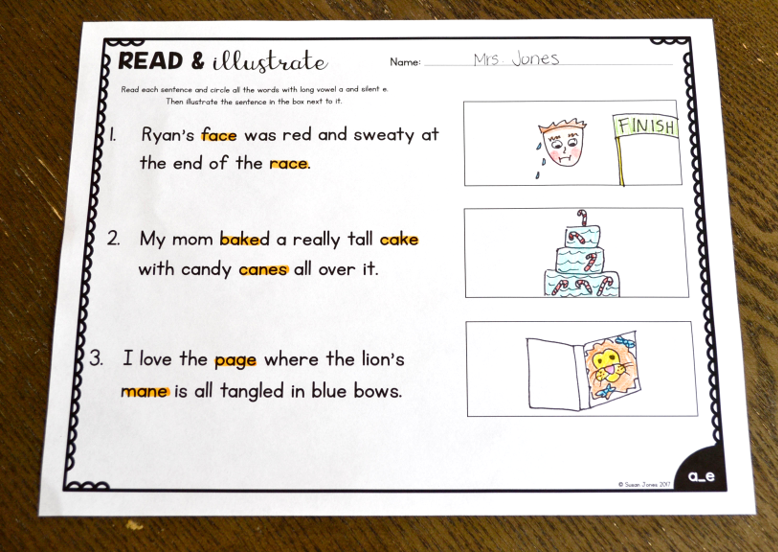 READ & illustrate
Name: Mrs. Jones
Read each sentence and circle all the words with long vowel a and silent e.
Then illustrate the sentence in the box next to it.
1. Ryan's face was red and sweaty at
the end of the race.
FINISH
2. My mom baked a really tall cake
with candy canes all over it.
3. I love the page where the lion's
mane is all tangled in blue bows.
© Susan Jones 2017
a_e